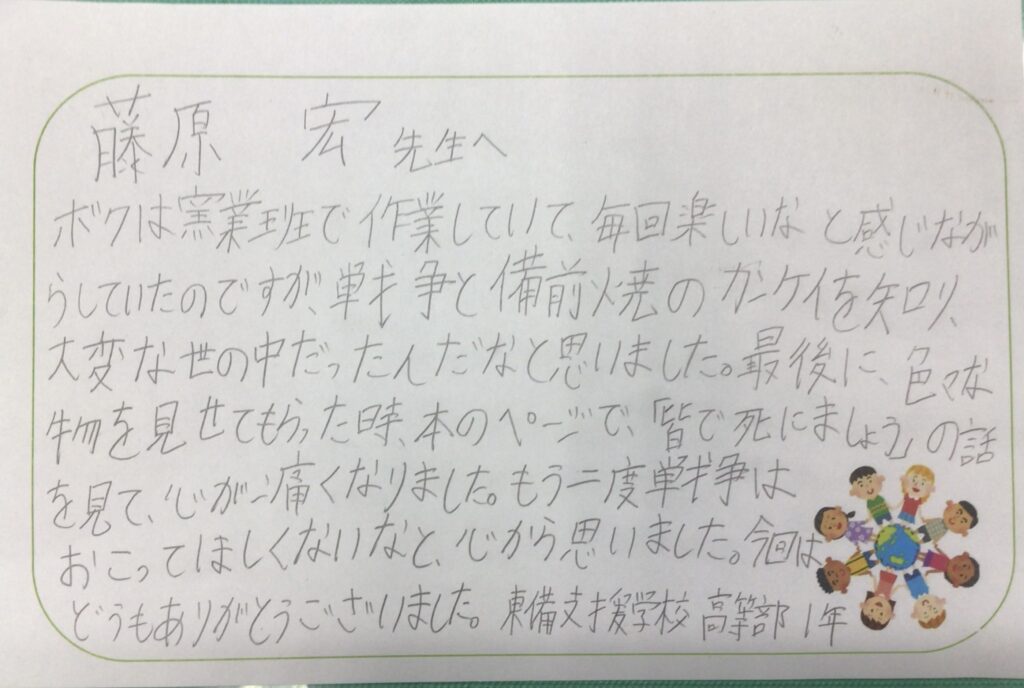 藤原 宏 先生へ
ボクは窯業班で作業していて、毎回楽しいなと感じなが
らしていたのですが、戦争と備前焼のカンケイを知り、
大変な世の中だったんだなと思いました。最後に、色々な
物を見せてもらった時、本のページで、「皆で死にましょう」の話
を見て、心が痛くなりました。もう二度戦争は
おこってほしくないなと、心から思いました。今回は
どうもありがとうございました。東備支援学校 高等部 1年